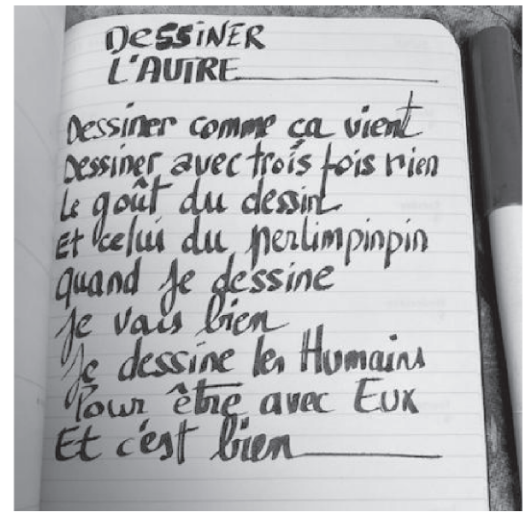 DESSINER
L'AUTRE
Dessiner comme ça vient
Dessiner avec trois fois rien
Le goût du dessin
Et celui du perlimpinpin
Quand je dessine
Je vais bien
Je dessine les Humains
Pour être avec Eux
Et c'est bien